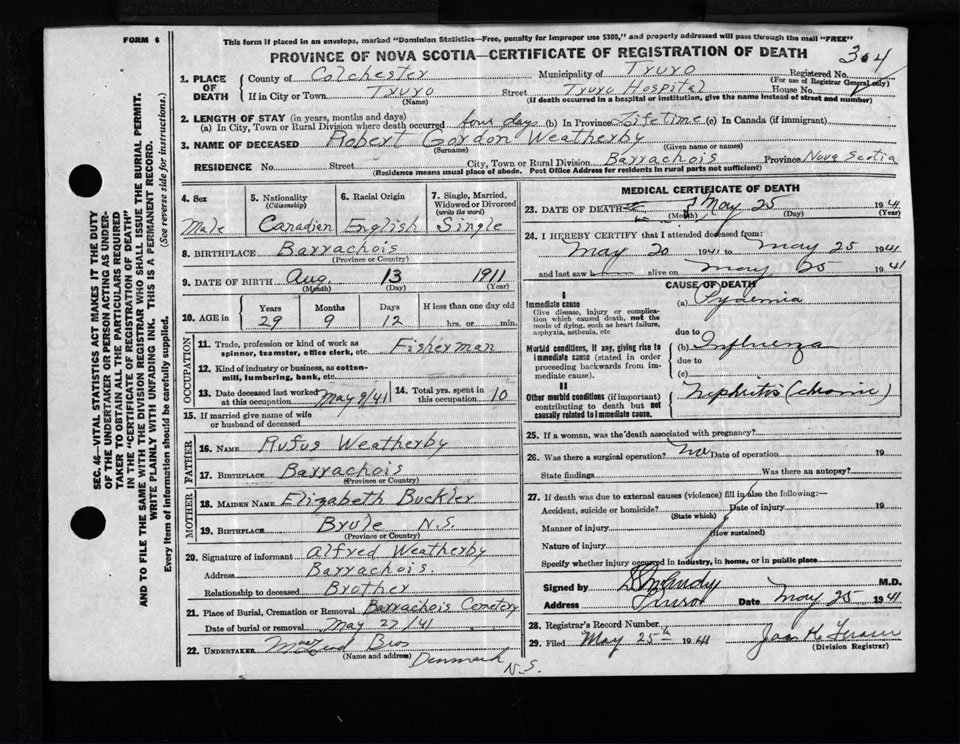 FORM 6
This form if placed in an envelope, marked "Dominion Statistics—Free, penalty for improper use $300," and properly addressed will pass through the mail "FREE"
PROVINCE OF NOVA SCOTIA—CERTIFICATE OF REGISTRATION OF DEATH
304
1. PLACE OF DEATH
County of Colchester Municipality of Truro Registered No.
(For use of Registrar General only)
If in City or Town Truro Street Truro Hospital House No.
(Name) (If death occurred in a hospital or institution, give the name instead of street and number)
2. LENGTH OF STAY (in years, months and days)
(a) In City, Town or Rural Division where death occurred four days (b) In Province Lifetime (c) In Canada (if immigrant)
3. NAME OF DECEASED Robert Gordon Weatherby
(Surname) (Given name or names)
RESIDENCE No. Street City, Town or Rural Division Barrachois Province Nova Scotia
(Residence means usual place of abode. Post Office Address for residents in rural parts not sufficient)
4. Sex Male
5. Nationality (Citizenship) Canadian
6. Racial Origin English
7. Single, Married, Widowed or Divorced (write the word) Single
8. BIRTHPLACE Barrachois
(Province or Country)
9. DATE OF BIRTH Aug. 13 1911
(Month) (Day) (Year)
10. AGE in Years 29 Months 9 Days 12 If less than one day old hrs. or min.
OCCUPATION
11. Trade, profession or kind of work as spinner, teamster, office clerk, etc. Fisherman
12. Kind of industry or business, as cotton-mill, lumbering, bank, etc.
13. Date deceased last worked at this occupation May 9/41
14. Total yrs. spent in this occupation 10
15. If married give name of wife or husband of deceased
FATHER
16. Name Rufus Weatherby
17. Birthplace Barrachois
(Province or Country)
MOTHER
18. Maiden Name Elizabeth Buckler
19. Birthplace Brule N.S.
(Province or Country)
20. Signature of informant Alfred Weatherby
Address Barrachois.
Relationship to deceased Brother
21. Place of Burial, Cremation or Removal Barrachois Cemetery
Date of burial or removal May 27/41
22. UNDERTAKER Bros
(Name and address) Denmark N.S.
MEDICAL CERTIFICATE OF DEATH
23. DATE OF DEATH May 25 1941
(Month) (Day) (Year)
24. I HEREBY CERTIFY that I attended deceased from:
May 20 1941 to May 25 1941
and last saw h alive on May 25 1941
CAUSE OF DEATH
I
Immediate cause
Give disease, injury or complication which caused death, not the mode of dying, such as heart failure, asphyxia, asthenia, etc
(a) Pyaemia
due to
Morbid conditions, if any, giving rise to immediate cause (stated in order proceeding backwards from immediate cause).
(b) Influenza
due to
(c)
II
Other morbid conditions (if important) contributing to death but not causally related to immediate cause.
Nephritis (chronic)
25. If a woman, was the death associated with pregnancy?
26. Was there a surgical operation? No Date of operation 19
State findings Was there an autopsy?
27. If death was due to external causes (violence) fill in also the following:—
Accident, suicide or homicide? Date of injury 19
(State which)
Manner of injury
(How sustained)
Nature of injury
Specify whether injury occurred in industry, in home, or in public place
Signed by M.D.
Address Truro Date May 25 1941
28. Registrar's Record Number
29. Filed May 25th 1941
(Division Registrar)
SEC. 46—VITAL STATISTICS ACT MAKES IT THE DUTY
OF THE UNDERTAKER OR PERSON ACTING AS UNDER-
TAKER TO OBTAIN ALL THE PARTICULARS REQUIRED
IN THE "CERTIFICATE OF REGISTRATION OF DEATH"
AND TO FILE THE SAME WITH THE DIVISION REGISTRAR WHO SHALL ISSUE THE BURIAL PERMIT.
WRITE PLAINLY WITH UNFADING INK. THIS IS A PERMANENT RECORD.
Every item of information should be carefully supplied. (See reverse side for instructions.)